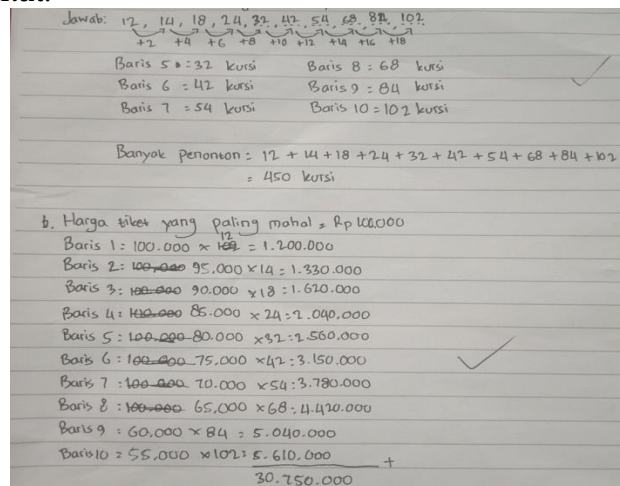 Jawab: 12, 14, 18, 24, 32, 42, 54, 68, 84, 102
+2 +4 +6 +8 +10 +12 +14 +16 +18
Baris 5 = 32 kursi Baris 8 = 68 kursi
Baris 6 = 42 kursi Baris 9 = 84 kursi
Baris 7 = 54 kursi Baris 10 = 102 kursi
Banyak penonton = 12 + 14 + 18 + 24 + 32 + 42 + 54 + 68 + 84 + 102
= 450 kursi
b. Harga tiket yang paling mahal = Rp 100.000
Baris 1 : 100.000 × 12 = 1.200.000
Baris 2 : 95.000 × 14 = 1.330.000
Baris 3 : 90.000 × 18 = 1.620.000
Baris 4 : 85.000 × 24 = 2.040.000
Baris 5 : 80.000 × 32 = 2.560.000
Baris 6 : 75.000 × 42 = 3.150.000
Baris 7 : 70.000 × 54 = 3.780.000
Baris 8 : 65.000 × 68 = 4.420.000
Baris 9 : 60.000 × 84 = 5.040.000
Baris 10 = 55.000 × 102 = 5.610.000
+
30.750.000